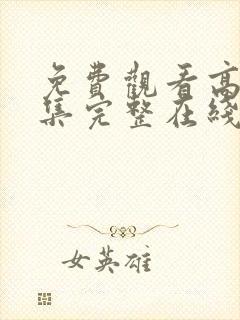 免費觀看高
集完整在綫
女英雄